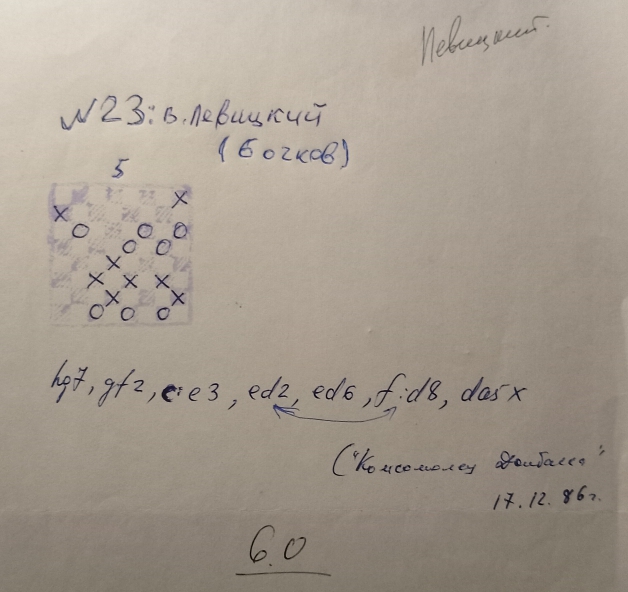 Левицкий.
№23: В. Левицкий
(6 очков)
5
hg7, gf2, c:e3, ed2, ed6, f:d8, da5x
("Комсомолец Донбасса"
17.12.86г.
6.0